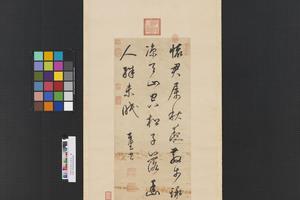 懷君屬秋夜散步詠
涼天山空松子落幽
人應未眠